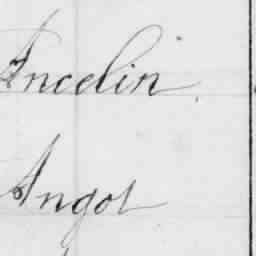 Ancelin
Angot